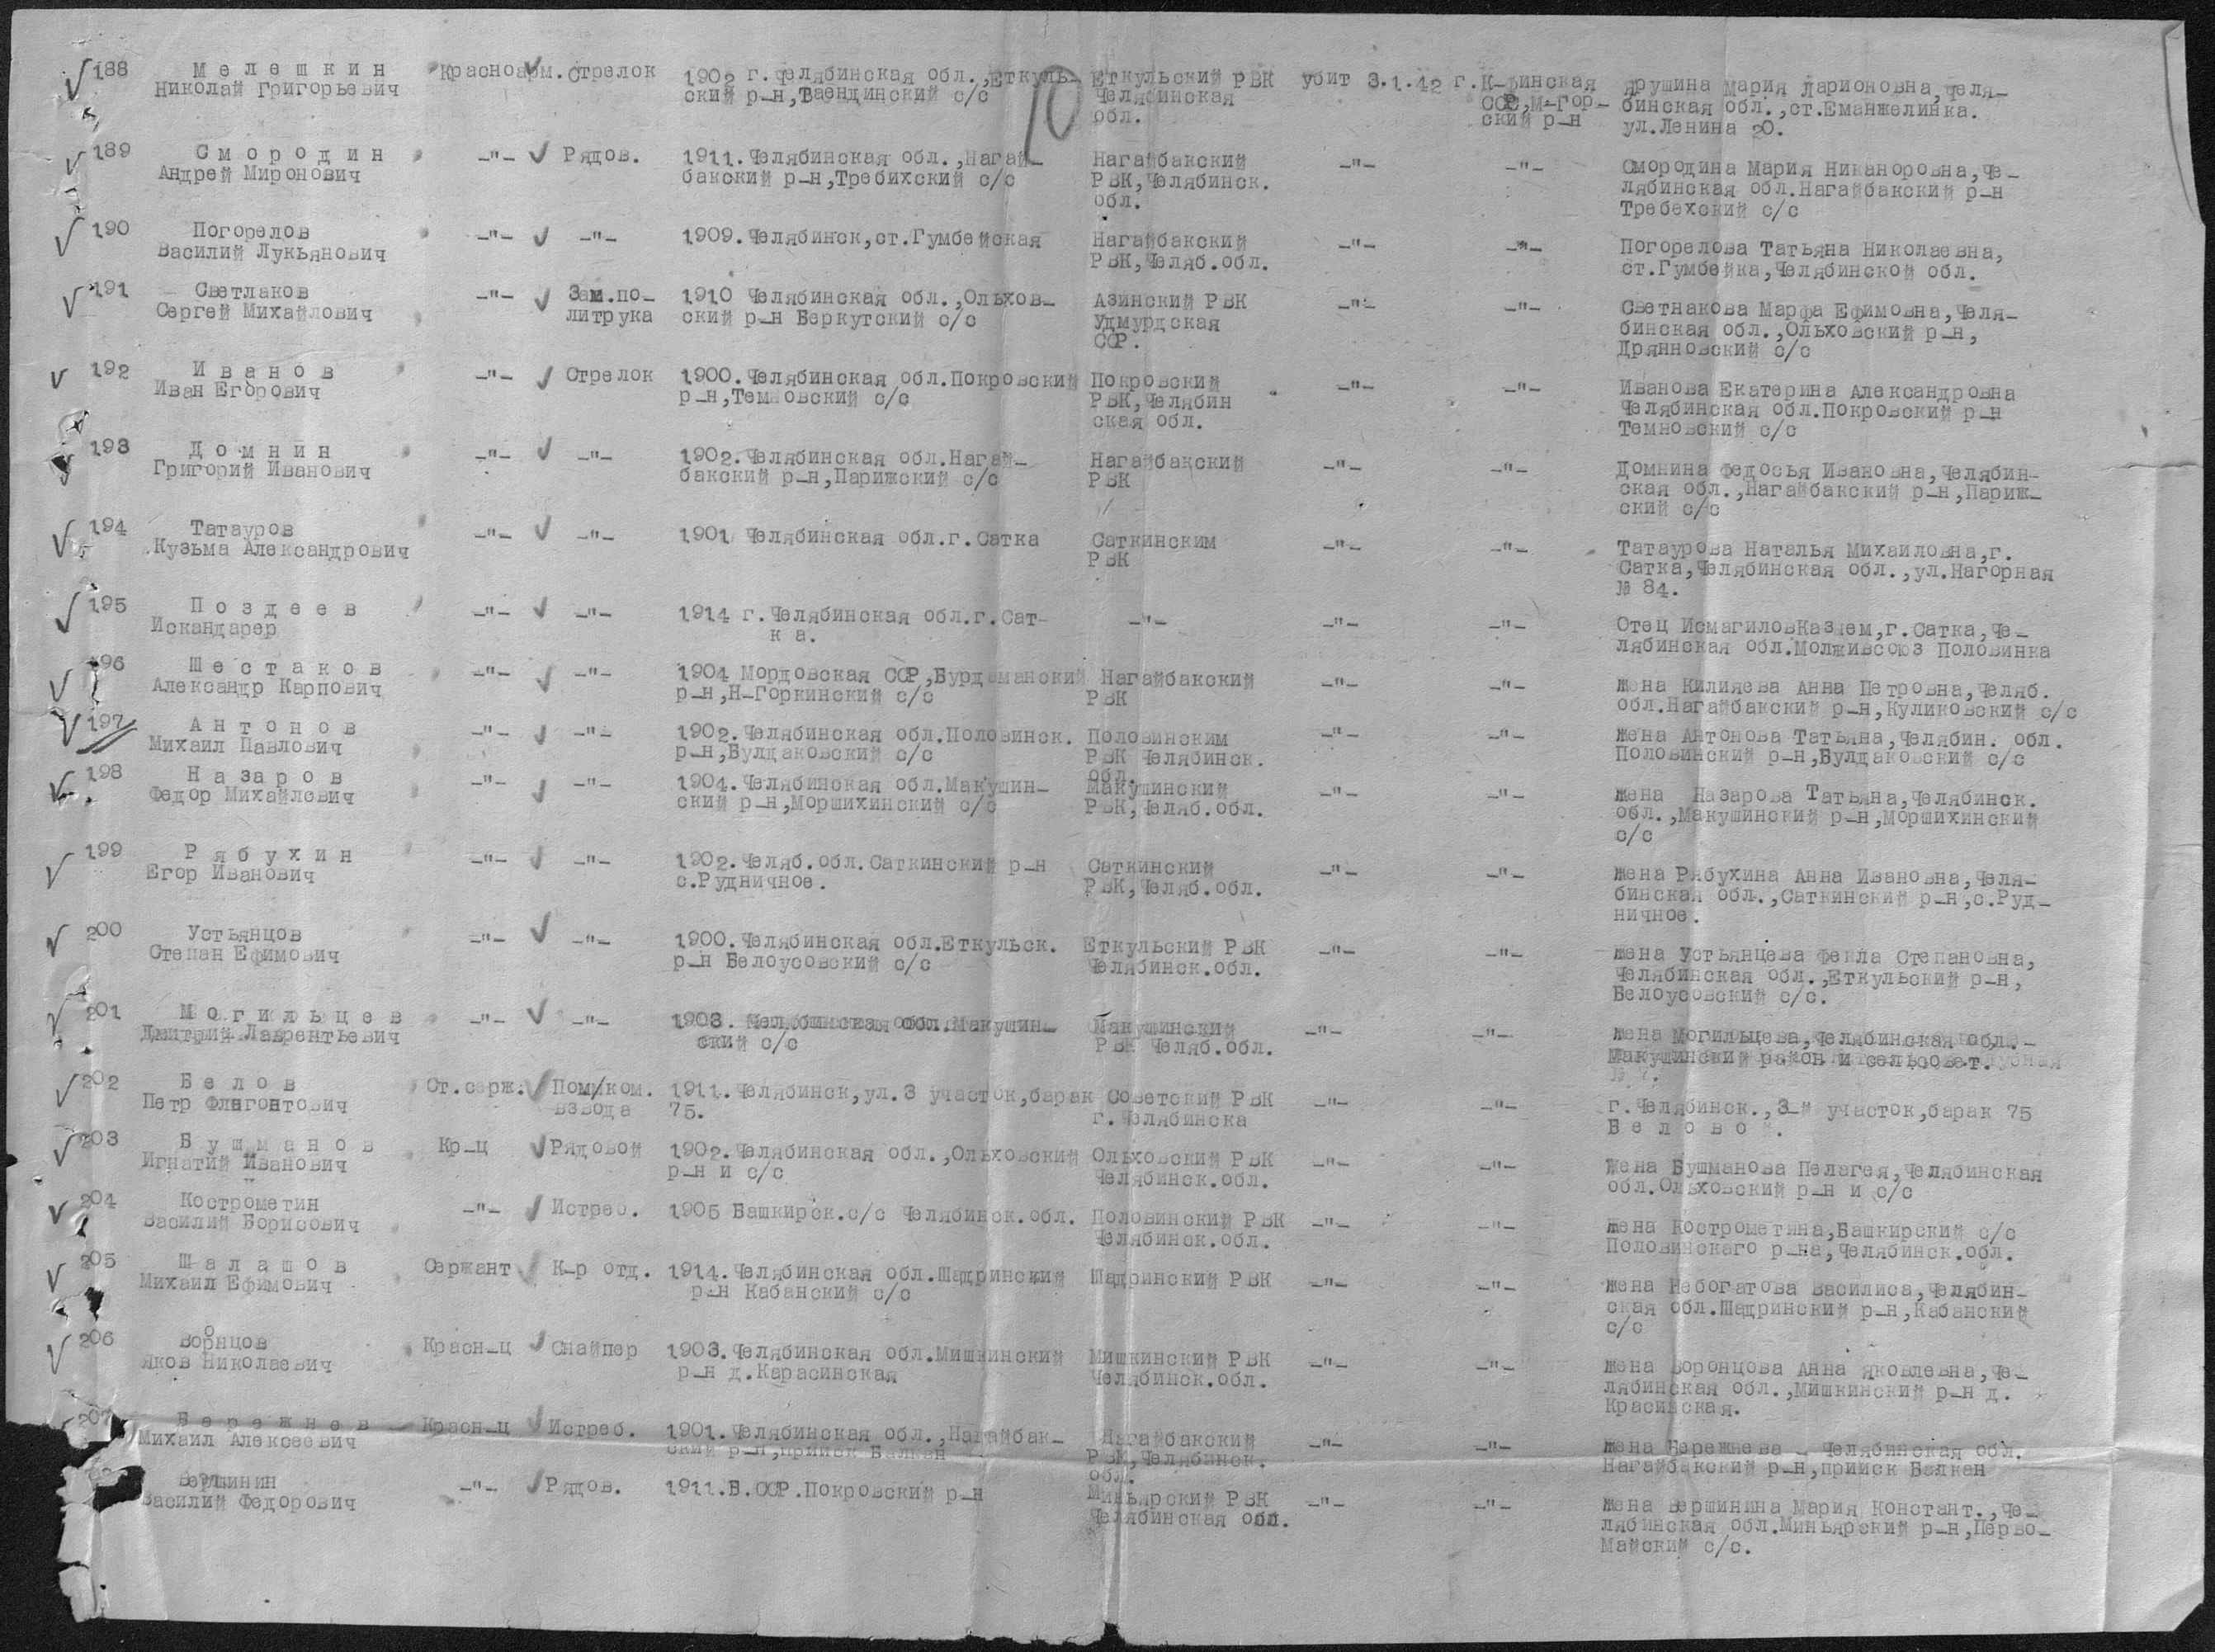 10
188 Мелешкин Красноарм. Стрелок 1902 г.Челябинская обл.,Еткуль- Еткульский РВК убит 3.1.42 г. К-финская Ярушина Мария Ларионовна,Челя-
Николай Григорьевич ский р-н,Таендинский с/с Челябинская ССР,М-Гор- бинская обл.,ст.Еманжелинка.
обл. ский р-н ул.Ленина 20.
189 Смородин -"- Рядов. 1911.Челябинская обл.,Нагай- Нагайбакский -"- -"- Смородина Мария Никаноровна,Че-
Андрей Миронович бакский р-н,Требихский с/с РВК,Челябинск. лябинская обл.Нагайбакский р-н
обл. Требехский с/с
190 Погорелов -"- -"- 1909.Челябинск,ст.Гумбейская Нагайбакский -"- -"- Погорелова Татьяна Николаевна,
Василий Лукьянович РВК,Челяб.обл. ст.Гумбейка,Челябинской обл.
191 Светлаков -"- Зам.по- 1910 Челябинская обл.,Ольхов- Азинский РВК -"- -"- Светнакова Марфа Ефимовна,Челя-
Сергей Михайлович литрука ский р-н Беркутский с/с Удмурдская бинская обл.,Ольховский р-н,
ССР. Дрянновский с/с
192 Иванов -"- Стрелок 1900.Челябинская обл.Покровский Покровский -"- -"- Иванова Екатерина Александровна
Иван Егорович р-н,Темновский с/с РВК,Челябин Челябинская обл.Покровский р-н
ская обл. Темновский с/с
193 Домнин -"- -"- 1902.Челябинская обл.Нагай- Нагайбакский -"- -"- Домнина Федосья Ивановна,Челябин-
Григорий Иванович бакский р-н,Парижский с/с РВК ская обл.,Нагайбакский р-н,Париж-
ский с/с
194 Татауров -"- -"- 1901 Челябинская обл.г.Сатка Саткинским -"- -"- Татаурова Наталья Михайловна,г.
Кузьма Александрович РВК Сатка,Челябинская обл.,ул.Нагорная
№ 84.
195 Поздеев -"- -"- 1914 г.Челябинская обл.г.Сат- -"- -"- -"- Отец ИсмагиловКазнем,г.Сатка,Че-
Искандарер ка. лябинская обл.Молживсоюз Половинка
196 Шестаков -"- -"- 1904 Мордовская ССР,Бурдаманский Нагайбакский -"- -"- жена Килияева Анна Петровна,Челяб.
Александр Карпович р-н,Н-Горкинский с/с РВК обл.Нагайбакский р-н,Куликовский с/с
197 Антонов -"- -"- 1902.Челябинская обл.Половинск. Половинским -"- -"- жена Антонова Татьяна,Челябин. обл.
Михаил Павлович р-н,Булдаковский с/с РВК Челябинск. Половинский р-н,Булдаковский с/с
обл.
198 Назаров -"- -"- 1904.Челябинская обл.Макушин- Макушинский -"- -"- жена Назарова Татьяна,Челябинск.
Федор Михайлович ский р-н,Моршихинский с/с РВК,Челяб.обл. обл.,Макушинский р-н,Моршихинский
с/с
199 Рябухин -"- -"- 1902.Челяб.обл.Саткинский р-н Саткинский -"- -"- жена Рябухина Анна Ивановна,Челя-
Егор Иванович с.Рудничное. РВК,Челяб.обл. бинская обл.,Саткинский р-н,с.Руд-
ничное.
200 Устьянцов -"- -"- 1900.Челябинская обл.Еткульск. Еткульский РВК -"- -"- жена Устьянцева Фекла Степановна,
Степан Ефимович р-н Белоусовский с/с Челябинск.обл. Челябинская обл.,Еткульский р-н,
Белоусовский с/с.
201 Могильцев -"- -"- 1903. Челябинская обл.Макушин- Макушинский -"- -"- жена Могильцева,Челябинская обл.-
Дмитрий Лаврентьевич ский с/с РВК Челяб.обл. Макушинский район и сельсовет.
202 Белов Ст.серж. Пом/ком. 1911.Челябинск,ул.3 участок,барак Советский РВК -"- -"- г.Челябинск.,3-й участок,барак 75
Петр Флегонтович взвода 75. г.Челябинска Беловой.
203 Бушманов Кр-ц Рядовой 1902.Челябинская обл.,Ольховский Ольховский РВК -"- -"- Жена Бушманова Пелагея,Челябинская
Игнатий Иванович р-н и с/с Челябинск.обл. обл.Ольховский р-н и с/с
204 Костро­метин -"- Истреб. 1905 Башкирск.с/с Челябинск.обл. Половинский РВК -"- -"- жена Костро­метина,Башкирский с/с
Василий Борисович Челябинск.обл. Половинскаго р-на,Челябинск.обл.
205 Шалашов Сержант К-р отд. 1914.Челябинская обл.Шадринский Шадринский РВК -"- -"- жена Небогатова Василиса,Челябин-
Михаил Ефимович р-н Кабанский с/с ская обл.Шадринский р-н,Кабанский
с/с
206 Воронцов Красн-ц Снайпер 1903.Челябинская обл.Мишкинский Мишкинский РВК -"- -"- жена Воронцова Анна Яковлевна,Че-
Яков Николаевич р-н д.Карасинская Челябинск.обл. лябинская обл.,Мишкинский р-н д.
Красинская.
207 Бережнев Красн-ц Истреб. 1901.Челябинская обл.,Нагайбак- Нагайбакский -"- -"- жена Бережнева - Челябинская обл.
Михаил Алексеевич ский р-н,прииск Балкан РВК,Челябинск. Нагайбакский р-н,прииск Балкан
обл.
Вершинин -"- Рядов. 1911.Б.ССР.Покровский р-н Миньярский РВК -"- -"- жена Вершинина Мария Констант.,Че-
Василий Федорович Челябинская обл. лябинская обл.Миньярский р-н,Перво-
майский с/с.